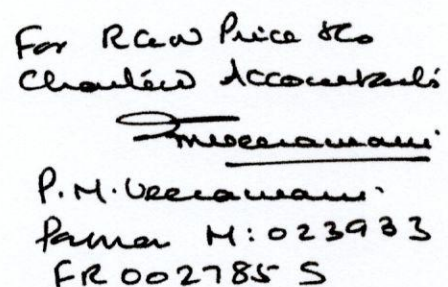 For R G N Price & Co
Chartered Accountants
P.M. Veeramani
Partner M: 023933
FR 002785 S